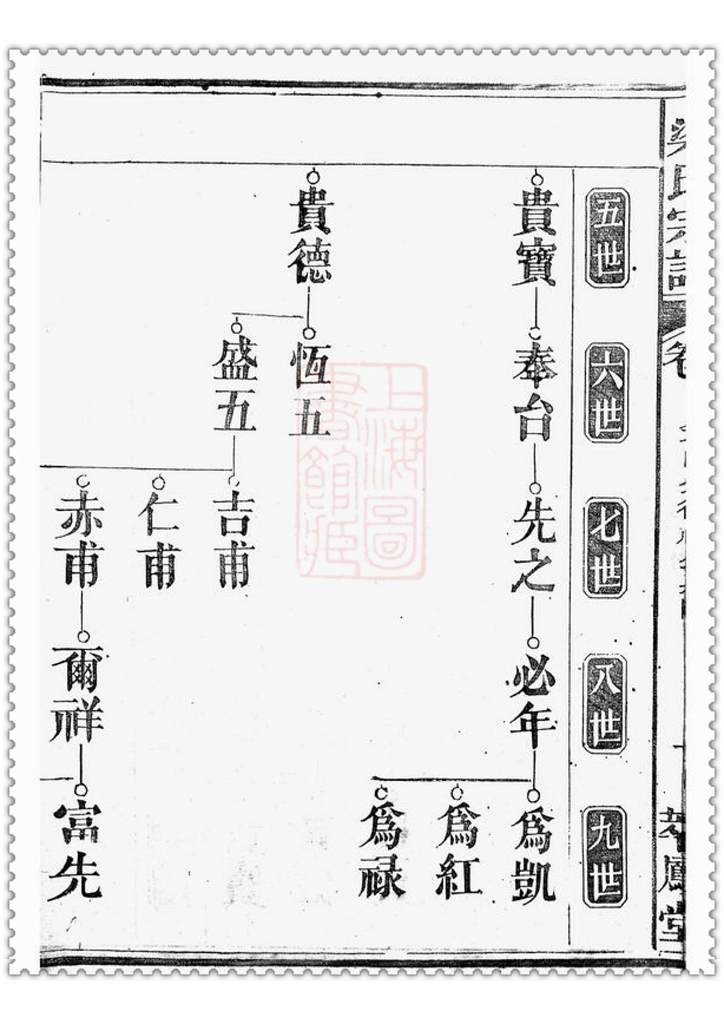 五世
六世
七世
八世
九世
貴寶
奉台
先之
必年
為凱
為紅
為祿
貴德
恆五
盛五
吉甫
仁甫
赤甫
爾祥
富先
上海圖
書館藏
氏宗譜
卷
鳳堂